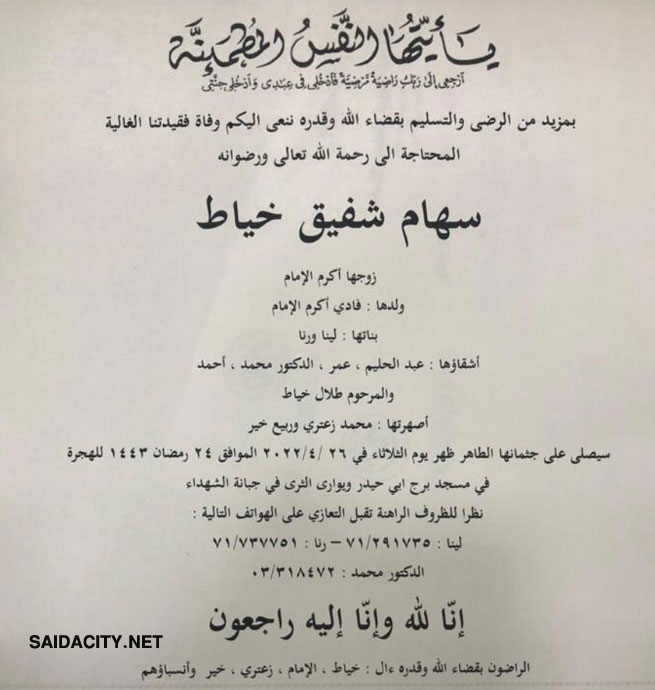 يـأيتها النفس المطمئنة
ارجعي إلى ربك راضية مرضية فادخلي في عبدي وادخلي جنتي
بمزيد من الرضى والتسليم بقضاء الله وقدره ننعى اليكم وفاة فقيدتنا الغالية
المحتاجة الى رحمة الله تعالى ورضوانه
سهام شفيق خياط
زوجها أكرم الإمام
ولدها : فادي أكرم الإمام
بناتها : لينا ورنا
أشقاؤها : عبد الحليم ، عمر ، الدكتور محمد ، أحمد
والمرحوم طلال خياط
أصهرتها : محمد زعتري وربيع خير
سيصلى على جثمانها الطاهر ظهر يوم الثلاثاء في ٢٦ /٢٠٢٢/٤ الموافق ٢٤ رمضان ١٤٤٣ للهجرة
في مسجد برج ابي حيدر ويوارى الثرى في جبانة الشهداء
نظرا للظروف الراهنة تقبل التعازي على الهواتف التالية :
لينا : ٧١/٢٩١٧٣٥ – رنا : ٧١/٧٣٧٧٥١
الدكتور محمد : ٠٣/٣١٨٤٧٢
إنّا لله وإنّا إليه راجعون
SAIDACITY.NET
الراضون بقضاء الله وقدره ءال : خياط ، الإمام ، زعتري ، خير وأنسباؤهم